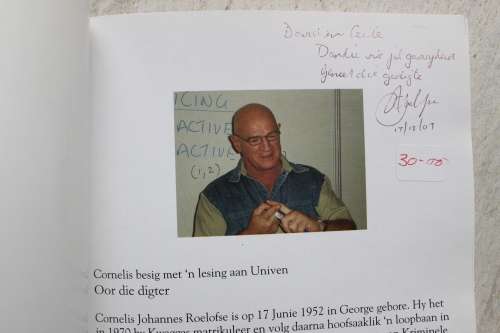 Dankie vir jul
Geniet die gedigte
17/12/07
30-00
ICING
ACTIVE
ACTIVE
(1,2)
Cornelis besig met 'n lesing aan Univen
Oor die digter
Cornelis Johannes Roelofse is op 17 Junie 1952 in George gebore. Hy het
in 1970 by matrikuleer en volg daarna hoofsaaklik 'n loopbaan in